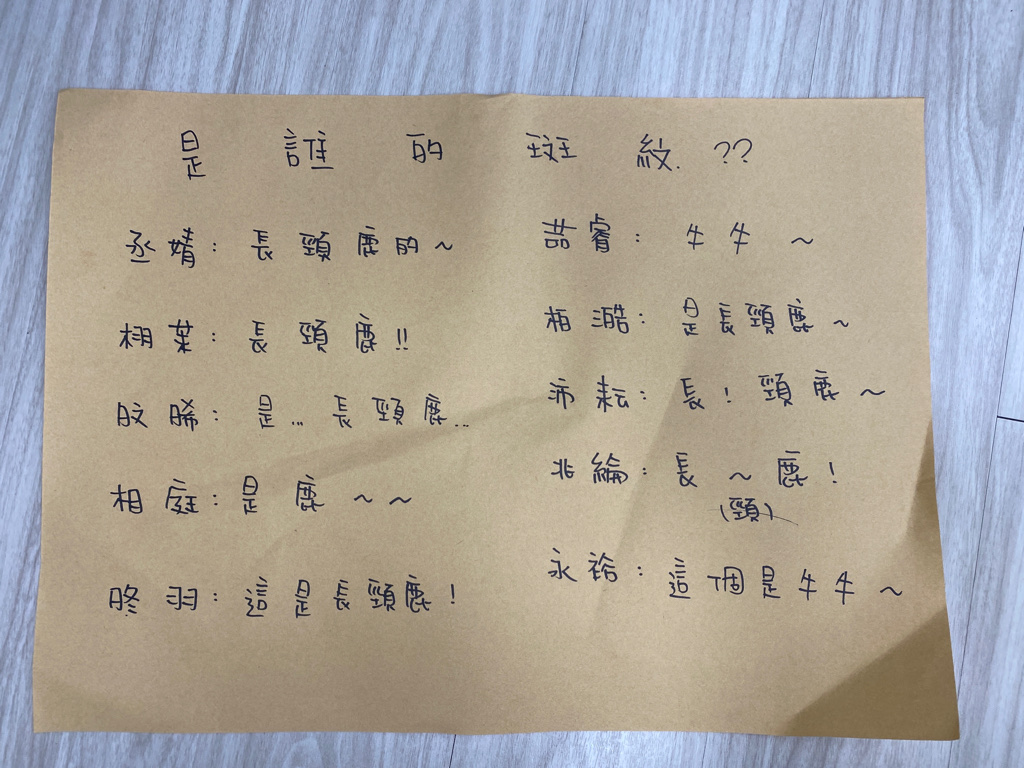 是誰的斑紋.??
丞婧：長頸鹿的~
栩葇：長頸鹿!!
旼晞：是...長頸鹿...
相庭：是鹿~~
昸羽：這是長頸鹿!
喆睿：牛牛~
栢澔：是長頸鹿~
沛耘：長!頸鹿~
北綸：長~鹿!
(頸)
永裕：這個是牛牛~